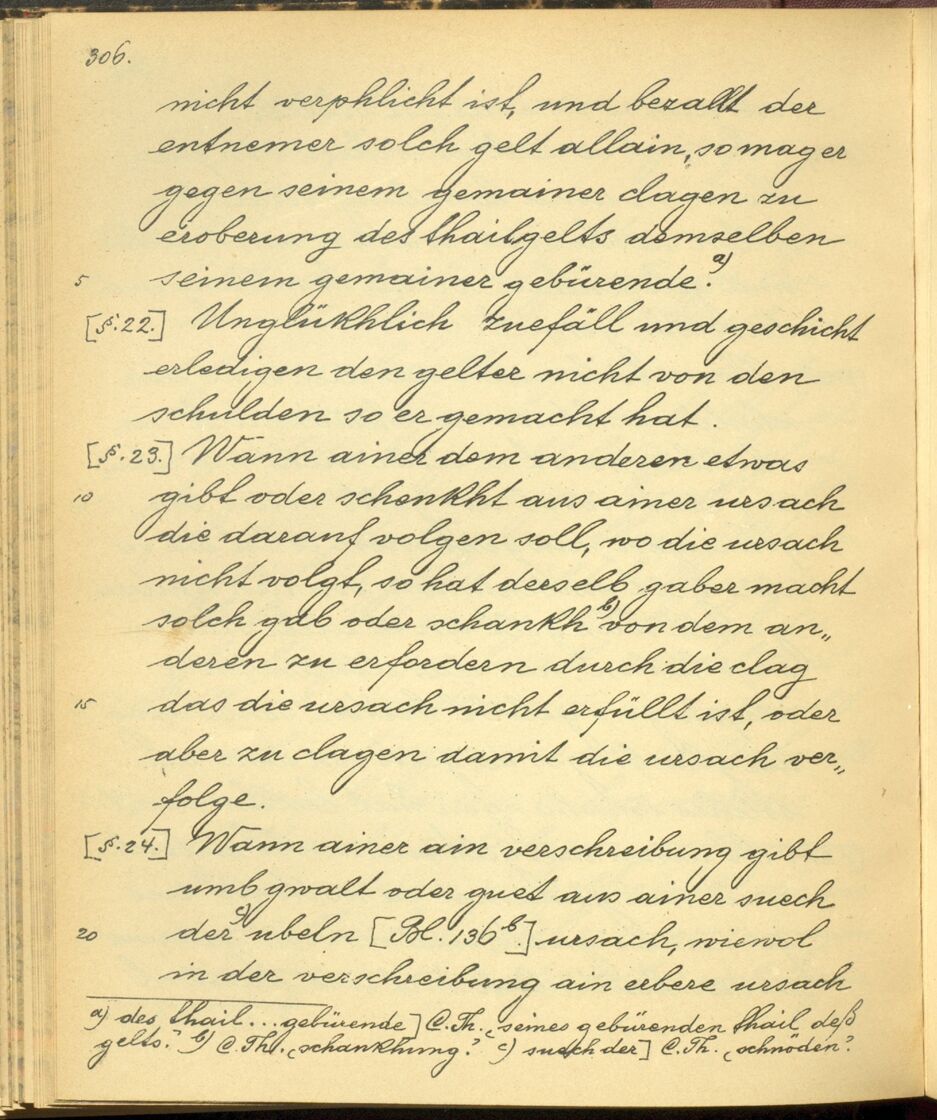 306.
nicht verphlicht ist, und bezallt der
entnemer solch gelt allain, so mag er
gegen seinem gemainer clagen zu
eroberung des thailgelts demselben
5 seinem gemainer gebürende.a)
[§.22.] Unglükhlich zuefäll und geschicht
erledigen den gelter nicht von den
schulden so er gemacht hat.
[§.23.] Wann ainer dem anderen etwas
10 gibt oder schenkht aus ainer ursach
die darauf volgen soll, wo die ursach
nicht volgt, so hat derselb gaber macht
solch gab oder schankh b) von dem an„
deren zu erfordern durch die clag
15 das die ursach nicht erfüllt ist, oder
aber zu clagen damit die ursach ver„
folge.
[§.24.] Wann ainer ain verschreibung gibt
umb gwalt oder guet aus ainer suech
20 der c) ubeln [Bl. 136b.] ursach, wiewol
in der verschreibung ain erbere ursach
a) des thail...gebürende] C.Th. „seines gebürenden thail deß
gelts.“ b) C.Th. „schankhung.“ c) suech der] C.Th. „schnöden“.